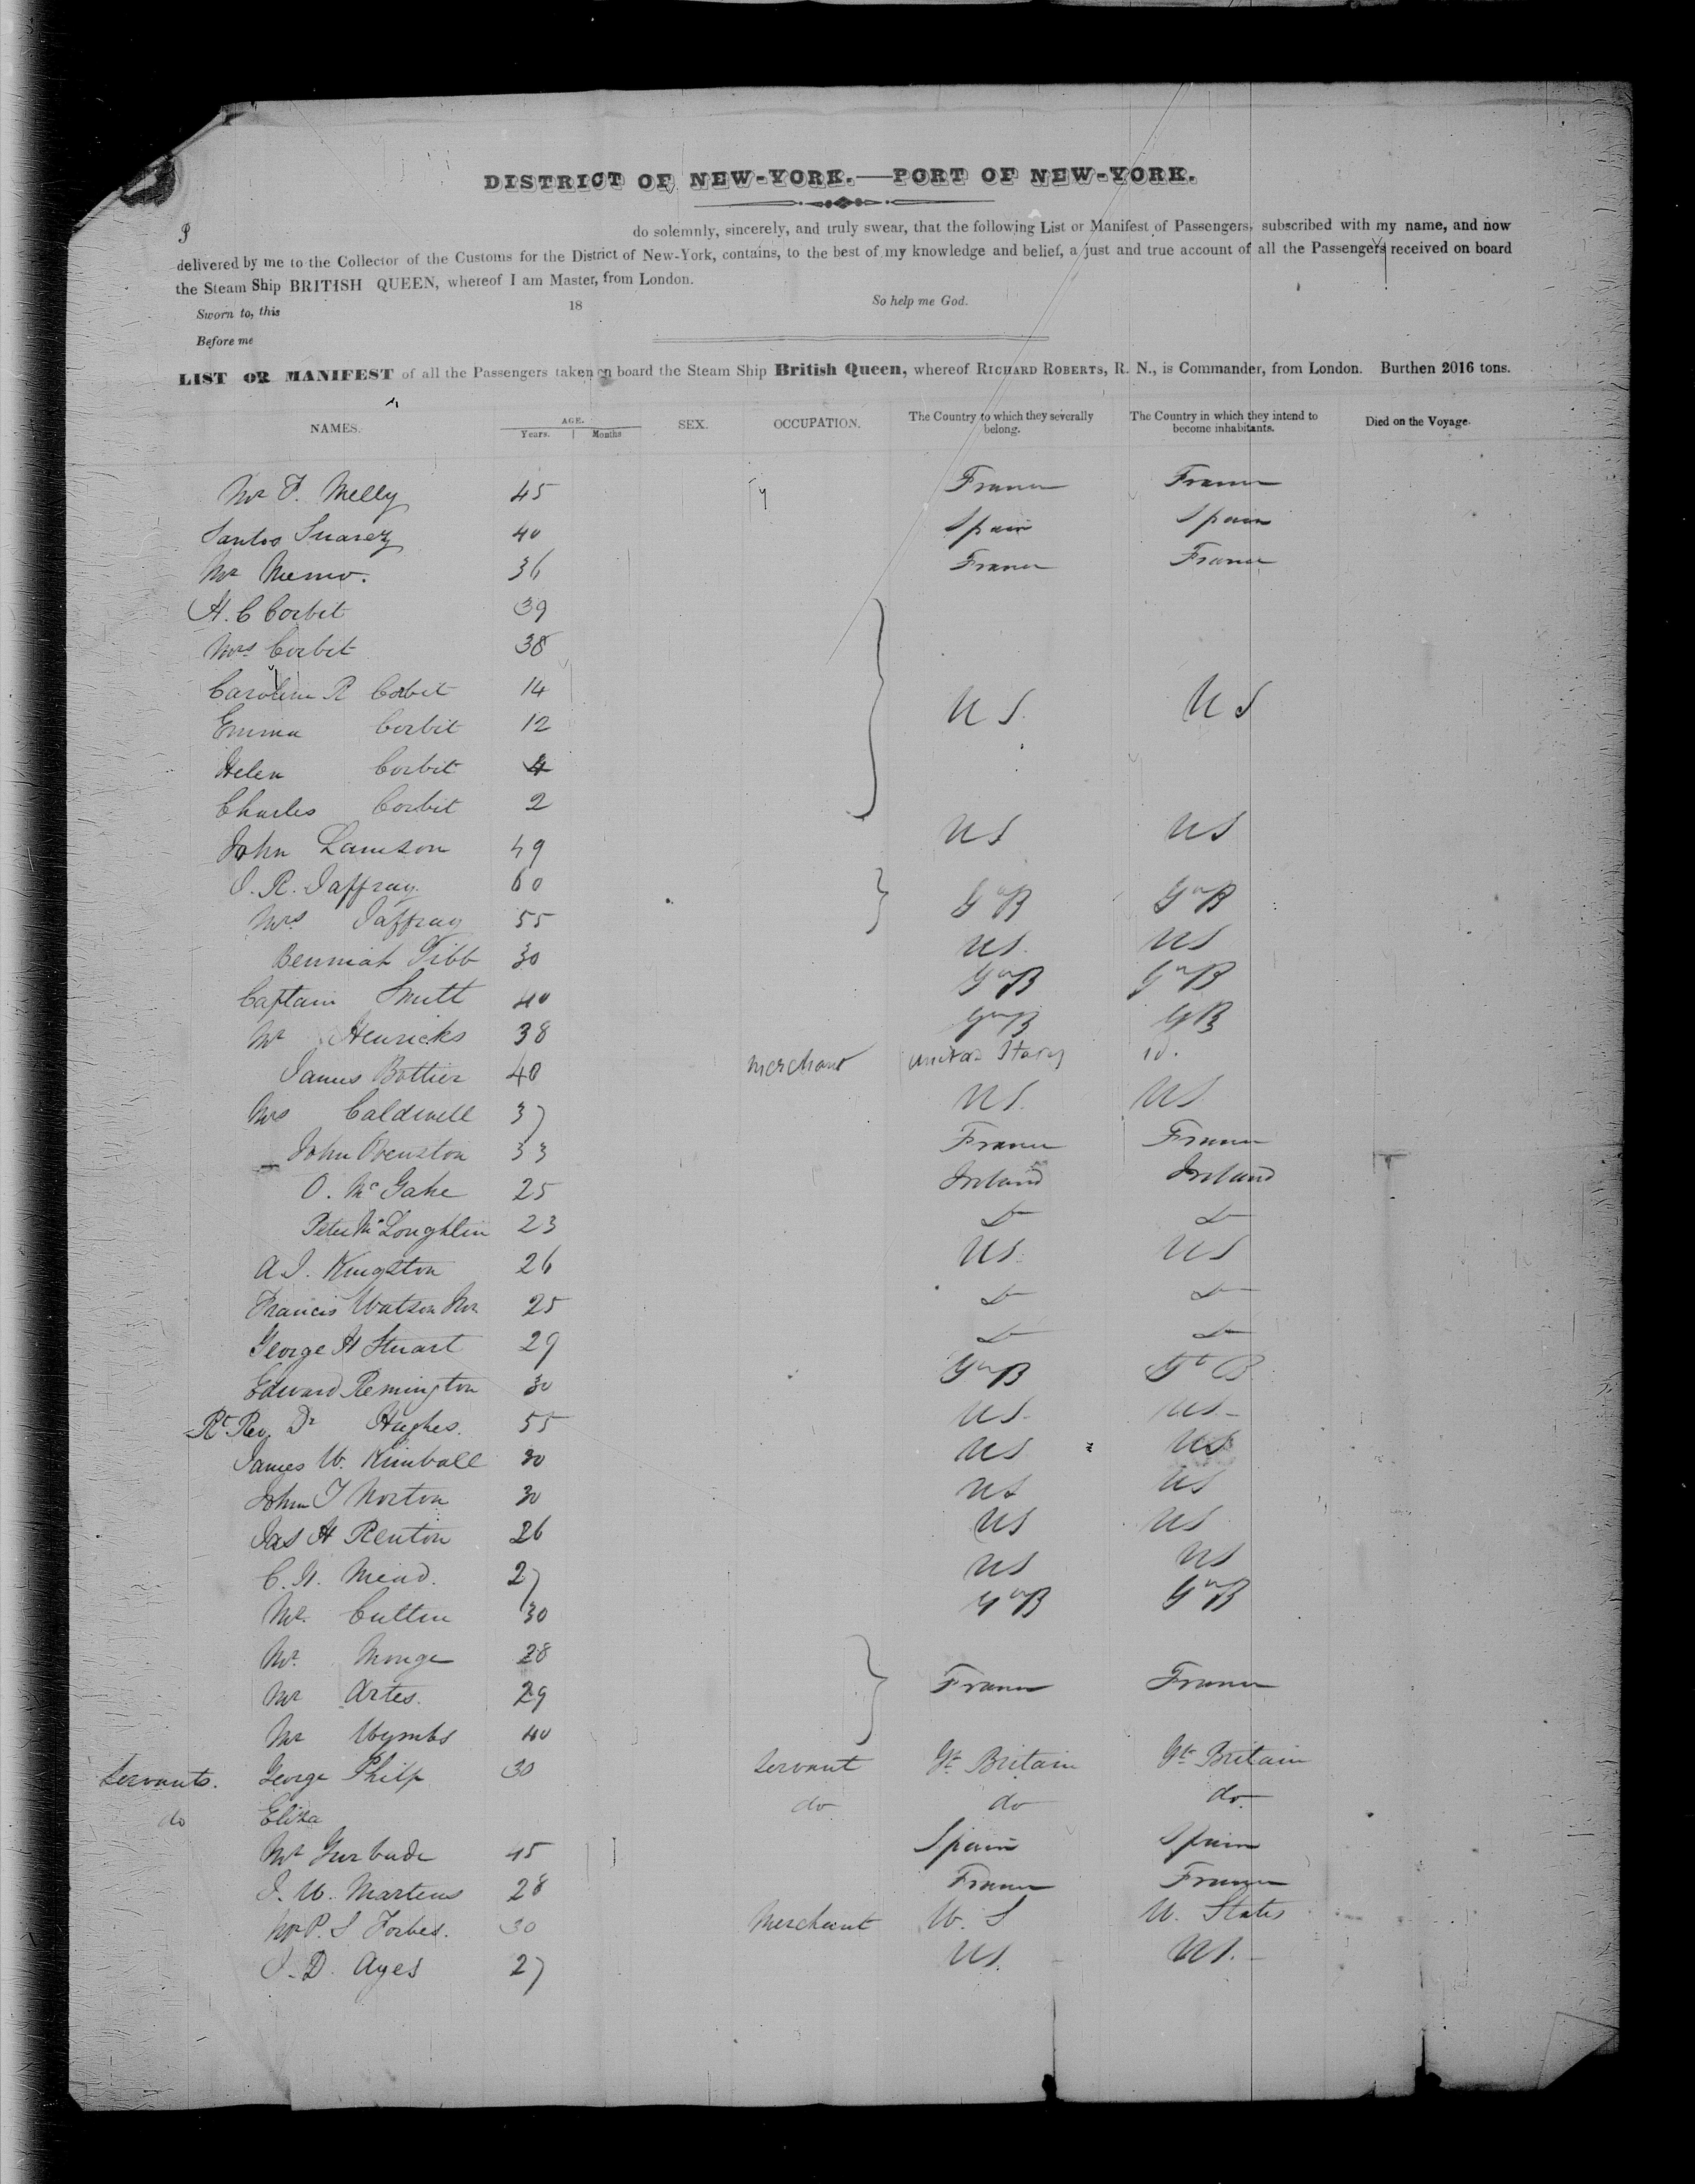 DISTRICT OF NEW-YORK.—PORT OF NEW-YORK.
I do solemnly, sincerely, and truly swear, that the following List or Manifest of Passengers, subscribed with my name, and now
delivered by me to the Collector of the Customs for the District of New-York, contains, to the best of my knowledge and belief, a just and true account of all the Passengers received on board
the Steam Ship BRITISH QUEEN, whereof I am Master, from London.
So help me God.
Sworn to, this 18
Before me
LIST OR MANIFEST of all the Passengers taken on board the Steam Ship British Queen, whereof RICHARD ROBERTS, R. N., is Commander, from London. Burthen 2016 tons.
NAMES. AGE. Years. Months SEX. OCCUPATION. The Country to which they severally belong. The Country in which they intend to become inhabitants. Died on the Voyage.
Mr F. Melly 45 France France
Santos Suarez 40 Spain Spain
Mr 36 France France
H. C Corbit 39
Mrs Corbit 38
Caroline R Corbit 14 U S. U S
Emma Corbit 12
Helen Corbit 4
Charles Corbit 2
John Lamson 49 U S U S
J. R. Jaffray. 60 Gt B Gt B
Mrs Jaffray 55
Tibb 30 U S. U S
Captain Smitt 40 Gt B Gt B
Mr Henricks 38 Gt B G B
James Bottier 40 merchant United States id.
Mrs Caldwell 37 U S. U S
John 33 France France
O. Mc Gahe 25 Ireland Ireland
Peter Mc Loughlin 23 Do Do
A J. Kingston 26 U S. U S
Francis Watson 25 Do Do
George H Stuart 29 Do Do
Edward Remington 30 Gt B Gt B
Rt Rev Dr Hughes. 55 U S. U S.
James W. Kimball 30 U S U S
John T Norton 30 U S U S
Jas H Renton 26 U S U S
C. H. Mead. 27 U S U S
Mr. Cullen 30 Gt B Gt B
Mr. Monge 28
Mr Artes. 29 France France
Mr Wymbs 40
Servants. George Philp 30 Servant Gt Britain Gt Britain
do Eliza do do do.
Mr 45 Spain Spain
J. W. Martens 28 France France
Mr P. S Forbes. 30 Merchant U. S U. States
J. D. Ayes 27 U S. U S.